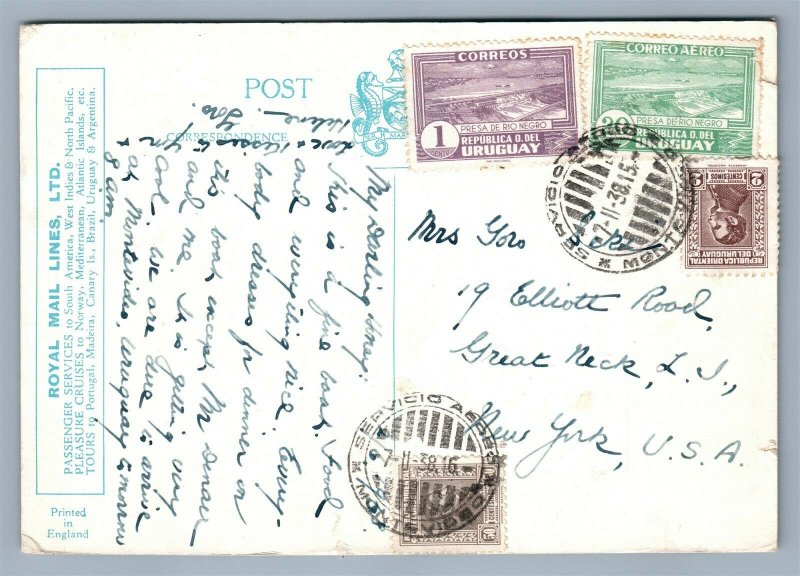 ROYAL MAIL LINES, LTD.
PASSENGER SERVICES to South America, West Indies & North Pacific.
PLEASURE CRUISES to Norway, Mediterranean, Atlantic Islands, etc.
TOURS to Portugal, Madeira, Canary Is., Brazil, Uruguay & Argentina.
Printed
in
England
POST
CORRESPONDENCE
My Darling Honey:
This is a fine boat. Food
and everything nice. Every-
body dresses for dinner on
this boat except Mr
and me. It is getting very
cool. We are due to arrive
at Montevideo, Uruguay tomorrow
8 am.
Love & kisses to you
Helene.
Goro
Mrs Goro
19 Elliott Road,
Great Neck, L.I.,
New York, U.S.A.
CORREOS
1
PRESA DE RIO NEGRO
REPUBLICA O. DEL
URUGUAY
CORREO AÉREO
PRESA DE RIO NEGRO
REPUBLICA O. DEL
URUGUAY
2 CENTESIMOS 2
REPUBLICA ORIENTAL
DEL URUGUAY
SERVICIO AEREO